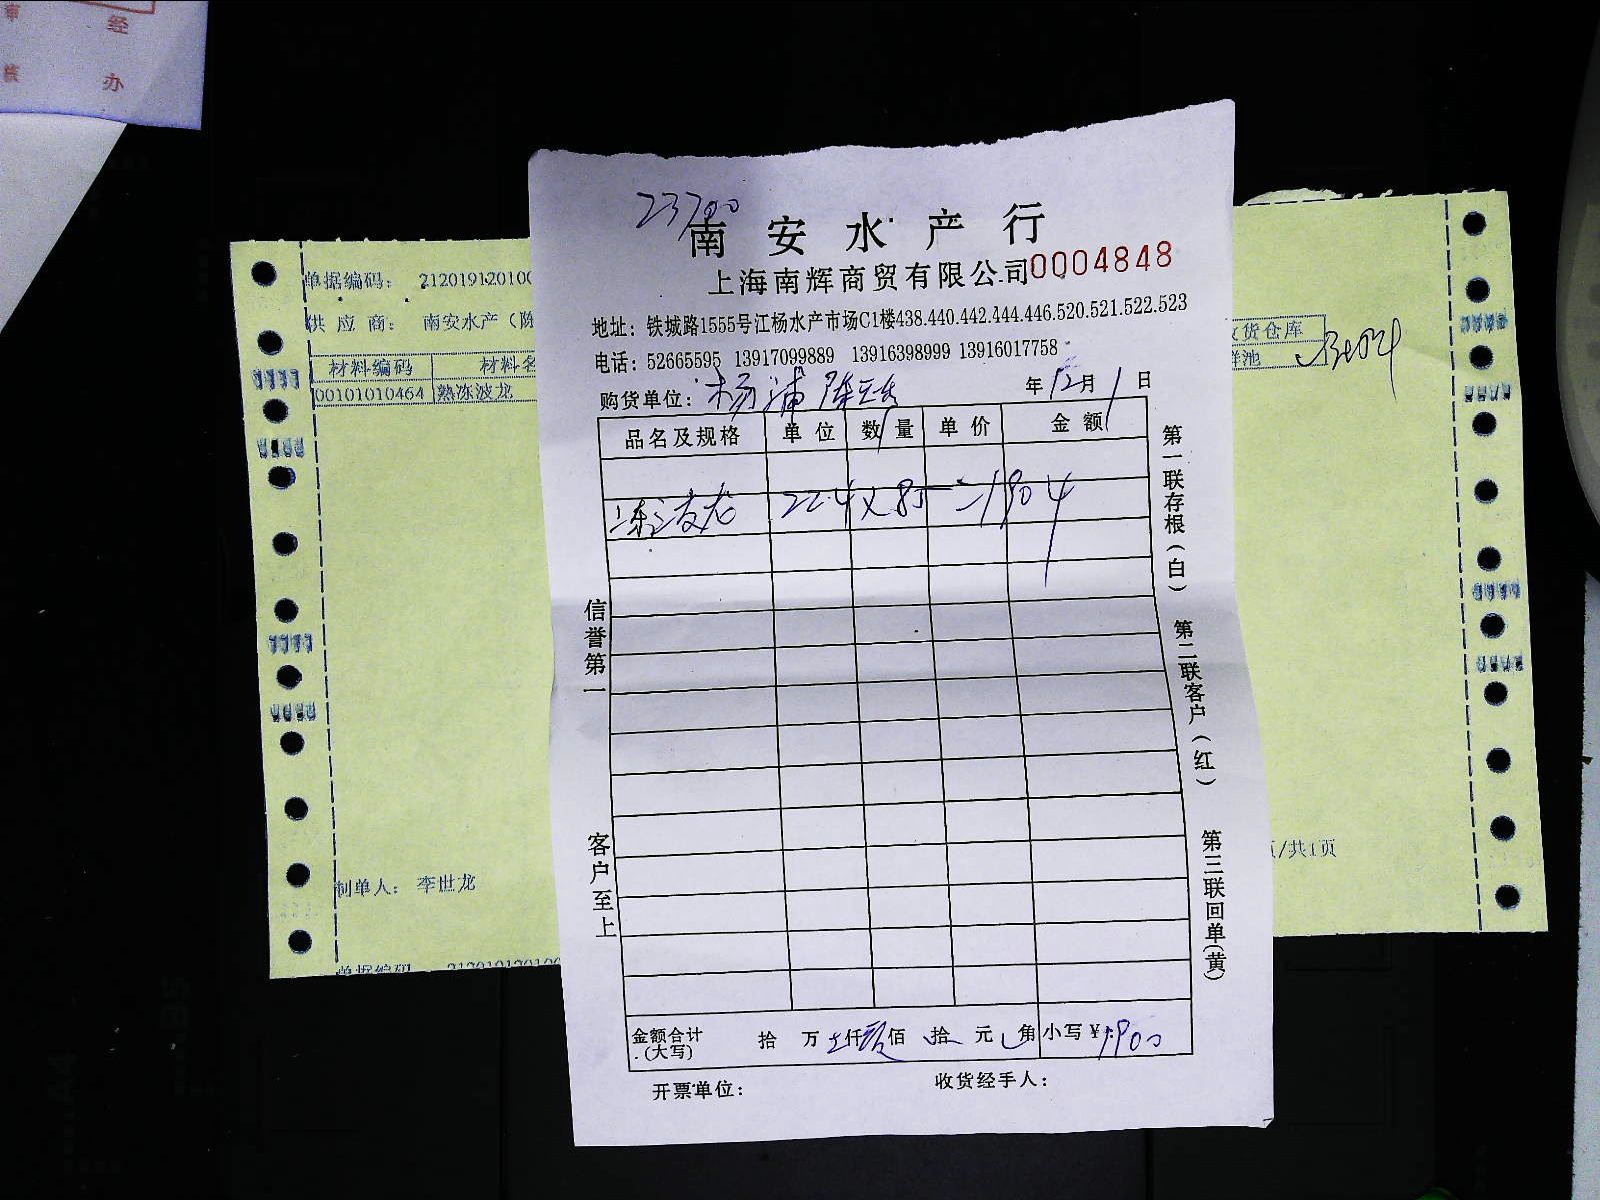 经
办
南安水产行
上海南辉商贸有限公司 0004848
地址：铁城路1555号江杨水产市场C1楼438.440.442.444.446.520.521.522.523
电话：52665595 13917099889 13916398999 13916017758
购货单位：杨浦 年12月1日
品名及规格 单位 数量 单价 金额
冻波龙 22.4×85=1904
信誉第一
客户至上
第一联存根（白）
第二联客户（红）
第三联回单（黄）
金额合计（大写） 拾 万 仟 佰 拾 元 角 小写¥1900
开票单位： 收货经手人：
单据编码： 212019120100
供应商： 南安水产（陈
材料编码 材料名
00101010464 熟冻波龙
货仓库
鲜池
制单人： 李世龙
页/共1页
单据编码 212019120100